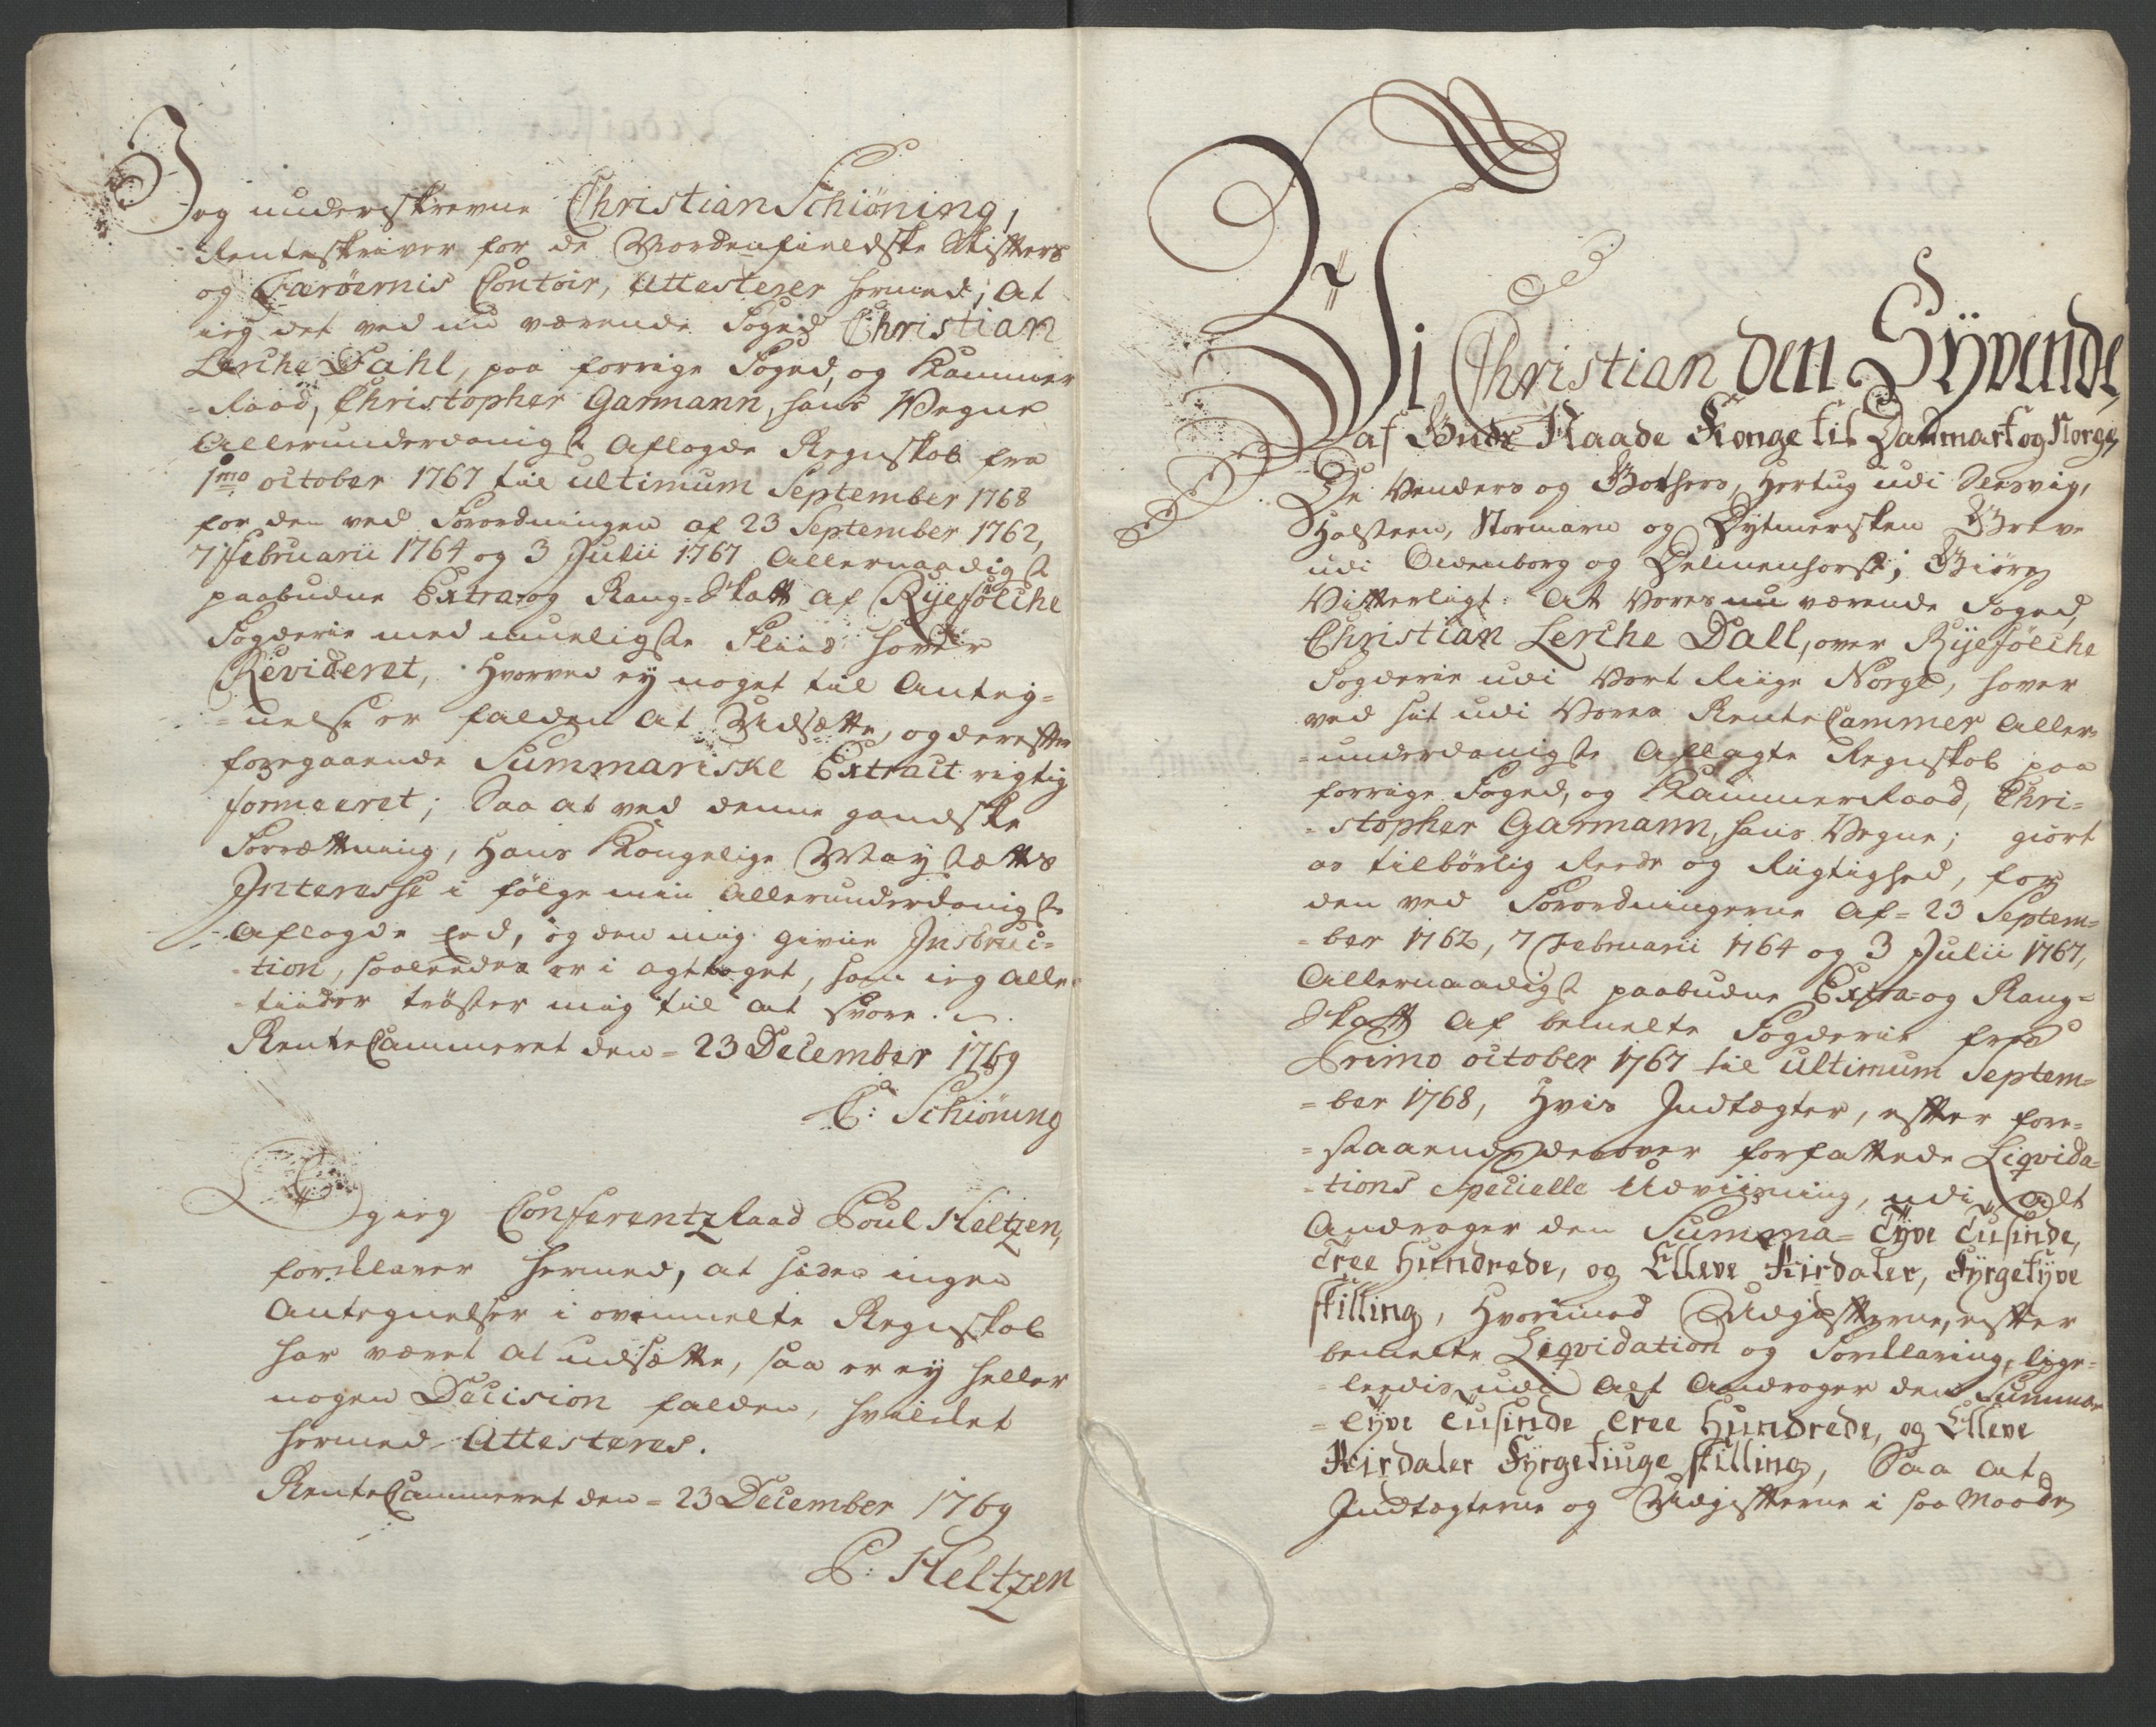 Jeg underskrevne Christian Schiöning,
Renteskriver for de Nordenfieldske Stifters
og Færöernis Contoir, Attesterer hermed, At
ieg det ved nu værende Foged Christian
Lerche Dahl, paa forrige Foged, og Kammer
-Raad, Christopher Garmann, hans Vegne
Allerunderdanigst Aflagde Regnskab fra
1mo october 1767 til ultimum September 1768
for den ved Forordningen af 23 September 1762,
7 Februarii 1764 og 3 Julii 1767 Allernaadigst
paabudne Extra og Rang-Skatt af Ryefölche
Fogderie med mueligste Fliid haver
Revideret, Hvorved ey noget til Anteg-
-nelse er falden at Udsætte, og derefter
foregaaende Summariske Extract rigtig
formeeret; Saa at ved denne gandske
Forrættning, Hans Kongelige Mayestætts
Interesse i fölge min Allerunderdanigste
Aflagde Eed, og den mig givne Instruc-
-tion, saaledes er i agttaget, som ieg Alle-
-tiider tröster mig til at svare.
RenteCammeret den = 23 December 1769
C: Schiöning
Og ieg ConferentzRaad Poul Heltzen,
forklarer hermed, at siden ingen
Antegnelser i ovenmelte Regnskab
har været at udsætte, saa er ey heller
nogen Decision falden, hvilcket
hermed Attesteres.
RenteCammeret den = 23 December 1769
P: Heltzen
Vi Christian den Syvende,
af Guds Naade Konge til Danmark og Norge,
De Venders og Gothers, Hertug udi Slesvig,
Holsteen, Stormarn og Dytmersken Greve
udi Oldenborg og Delmenhorst; Giöre
Vitterligt: At Vores nu værende Foged,
Christian Lerche Dall, over Ryefölche
Fogderie udi Vort Riige Norge, haver
ved sit udi Vores RenteCammer Aller-
-underdanigste Aflagte Regnskab paa
forrige Foged, og KammerRaad, Chri-
-stopher Garmann, hans Vegne; giort
os tilbörlig Reede og Rigtighed, for
den ved Forordningerne Af = 23 Septem-
-ber 1762, 7 Februarii 1764 og 3 Julii 1767,
Allernaadigst paabudne Extra- og Rang-
Skatt Af bemelte Fogderie fra
Primo october 1767 til ultimum Septem-
-ber 1768, Hvis Indtægter, efter fore-
-staaende derover forfattede Liqvida-
-tions Specielle Udviisning, udi Alt
Andrager den Summa = Tyve Tusinde,
Tree Hundrede, og Elleve Rixdaler, Fyrgetyve
skilling, Hvorimod Udgifterne, efter
bemelte Liqvidation og Forklaring, lige-
-leedis udi Alt Andrager den Summa
= Tyve Tusinde Tree Hundrede, og Elleve
Rixdaler Fyrgetiuge skilling, Saa at
Indtægterne og Udgifterne i saa Maade